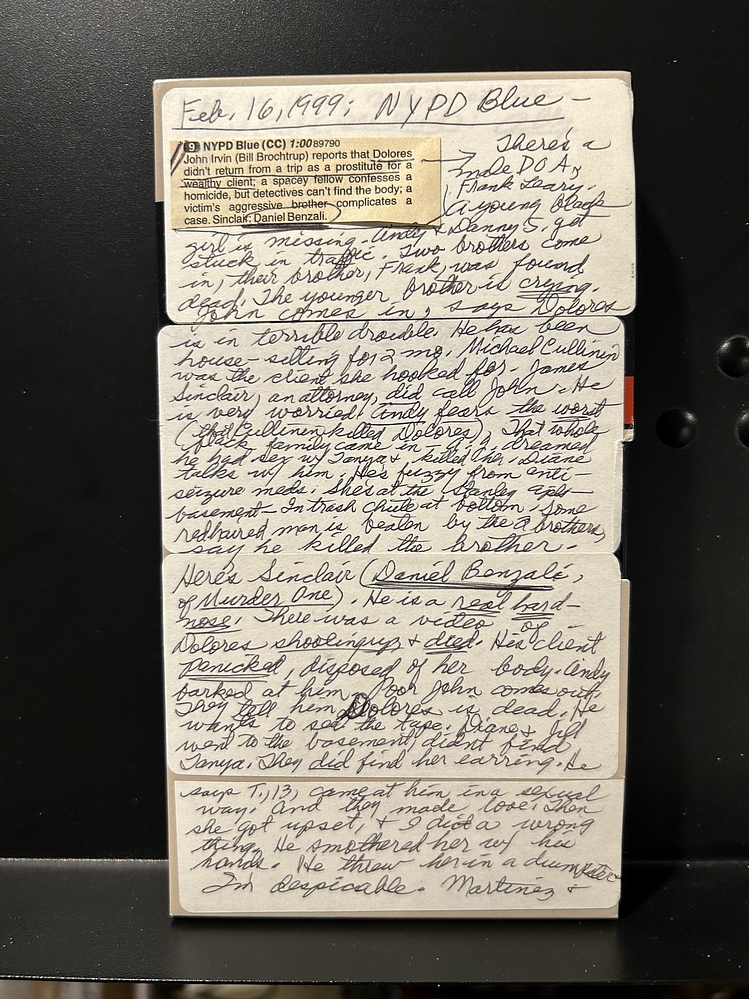 Feb. 16, 1999; NYPD Blue -
9 NYPD Blue (CC) 1:00 89790
John Irvin (Bill Brochtrup) reports that Dolores
didn't return from a trip as a prostitute for a
wealthy client; a spacey fellow confesses a
homicide, but detectives can't find the body; a
victim's aggressive brother complicates a
case. Sinclair: Daniel Benzali.
There's a
male DOA,
Frank Leary.
A young black
girl is missing. Andy & Danny S. get
stuck in traffic. Two brothers come
in, their brother, Frank, was found
dead. The younger brother is crying.
John comes in, says Dolores
is in terrible trouble. He has been
house-sitting for 2 mo. Michael Cullinen
was the client she hooked for. James
Sinclair, an attorney, did call John. He
is very worried. Andy fears the worst
(that Cullinen killed Dolores). That whole
black family came in. dreamed
he had sex w/ Tanya & killed her. Diane
talks w/ him. He's fuzzy from anti-
seizure meds. She's at the Stanley apts-
basement - In trash chute at bottom. Some
redhaired man is beaten by the 2 brothers,
say he killed the brother.
Here's Sinclair (Daniel Benzali,
of Murder One). He is a real hard-
nose. There was a video of
Dolores shooting up & died. His client
panicked, disposed of her body. Andy
barked at him. Poor John comes out.
They tell him Dolores is dead. He
wants to see the tape. Diane & Jill
went to the basement, didn't find
Tanya. They did find her earring. He
says T., 13, came at him in a sexual
way. And they made love. Then
she got upset, & I did a wrong
thing. He smothered her w/ his
hands. He threw her in a dumpster
I'm despicable. Martinez &